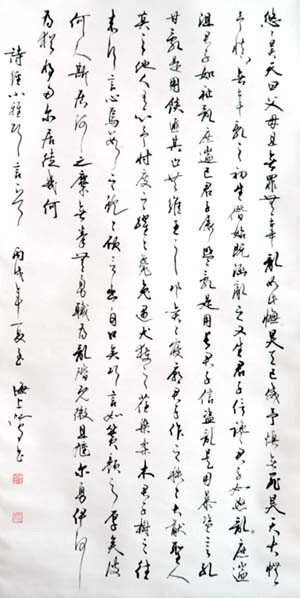 悠々昊天曰父母且無罪無辜亂如此憮昊天已威予慎無罪昊天大憮
予慎無辜亂之初生僭始既涵亂之又生君子信讒君子如怒亂庶遄
沮君子如祉亂庶遄已君子屢盟亂是用長君子信盜亂是用暴盜言孔
甘亂是用餤匪其止共維王之邛奕々寢廟君子作之秩々大猷聖人
莫之他人有心予忖度之躍々毚兔遇犬獲之荏染柔木君子樹之往
來行言心焉數之蛇々碩言出自口矣巧言如簧顏之厚矣彼
何人斯居河之麋無拳無勇職為亂階既微且尰爾勇伊何
為猶將多爾居徒幾何
詩經小雅巧言 丙戌年夏 海上